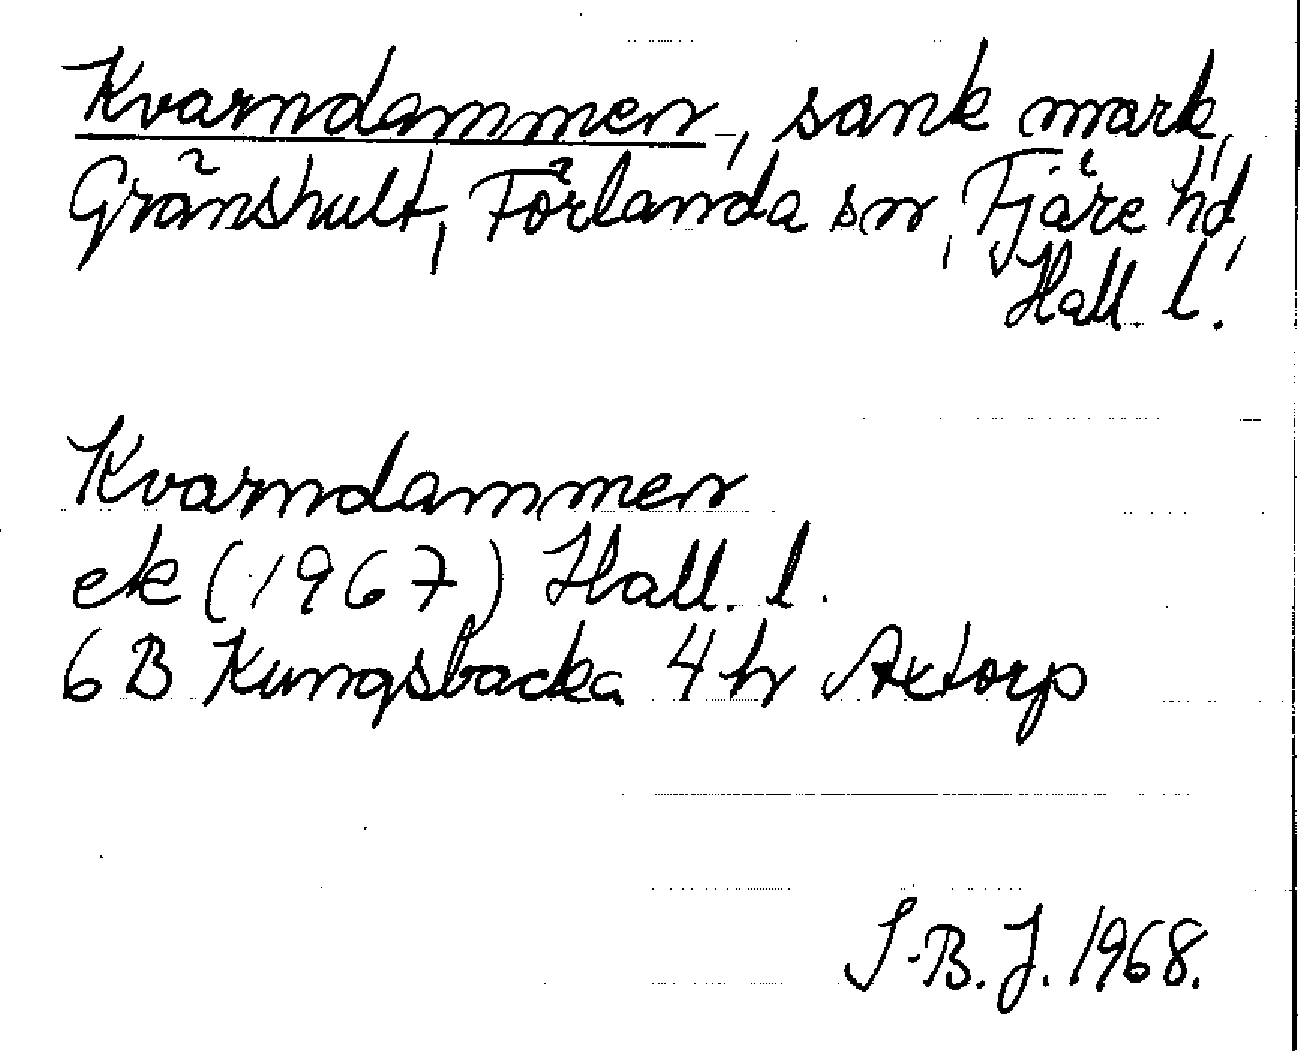 Kvarndammen, sank mark,
Gränshult, Förlanda sn, Fjäre hd,
Hall. l.
Kvarndammen
ek (1967) Hall. l.
6 B Kungsbacka 4 h Axtorp
S-B. J. 1968.